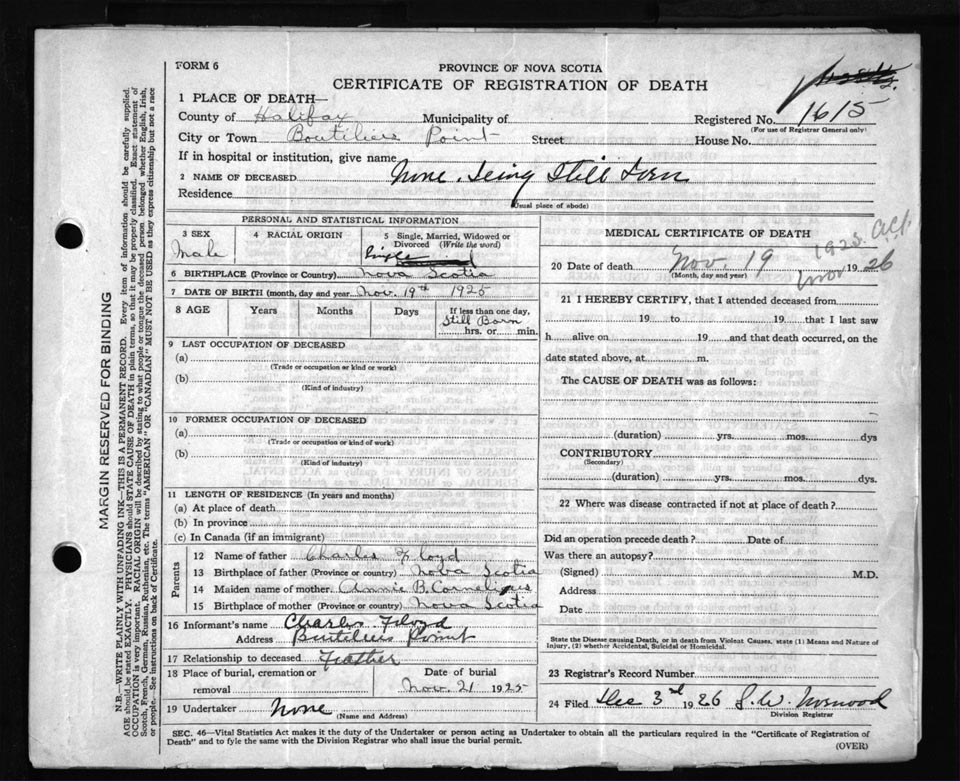 FORM 6
PROVINCE OF NOVA SCOTIA
CERTIFICATE OF REGISTRATION OF DEATH
1 PLACE OF DEATH—
County of Halifax Municipality of Registered No. 1615
(For use of Registrar General only)
City or Town Boutiliers Point Street House No.
If in hospital or institution, give name
2 NAME OF DECEASED None, being Still born
Residence
(Usual place of abode)
PERSONAL AND STATISTICAL INFORMATION
3 SEX Male
4 RACIAL ORIGIN
5 Single, Married, Widowed or Divorced (Write the word)
Single
6 BIRTHPLACE (Province or Country) Nova Scotia
7 DATE OF BIRTH (month, day and year Nov. 19th 1925
8 AGE Years Months Days If less than one day,
Still Born
hrs. or min.
9 LAST OCCUPATION OF DECEASED
(a)
(Trade or occupation or kind or work)
(b)
(Kind of industry)
10 FORMER OCCUPATION OF DECEASED
(a)
(Trade or occupation or kind of work)
(b)
(Kind of industry)
11 LENGTH OF RESIDENCE (In years and months)
(a) At place of death
(b) In province
(c) In Canada (if an immigrant)
Parents
12 Name of father Charles Floyd
13 Birthplace of father (Province or country) Nova Scotia
14 Maiden name of mother Annie B. Cornelious
15 Birthplace of mother (Province or country) Nova Scotia
16 Informant's name Charles Floyd
Address Boutiliers Point
17 Relationship to deceased Father
18 Place of burial, cremation or removal
Date of burial
Nov. 21 1925
19 Undertaker None
(Name and Address)
MEDICAL CERTIFICATE OF DEATH
1925
20 Date of death Nov. 19 1926
(Month, day and year)
21 I HEREBY CERTIFY, that I attended deceased from
19 to 19 that I last saw
h alive on 19 and that death occurred, on the
date stated above, at m.
The CAUSE OF DEATH was as follows:
(duration) yrs. mos. dys
CONTRIBUTORY
(Secondary)
(duration) yrs. mos. dys.
22 Where was disease contracted if not at place of death?
Did an operation precede death? Date of
Was there an autopsy?
(Signed) M.D.
Address
Date
State the Disease causing Death, or in death from Violent Causes, state (1) Means and Nature of
Injury, (2) whether Accidental, Suicidal or Homicidal.
23 Registrar's Record Number
24 Filed Dec 3rd 1926 J. W. Norwood
Division Registrar
SEC. 46—Vital Statistics Act makes it the duty of the Undertaker or person acting as Undertaker to obtain all the particulars required in the "Certificate of Registration of
Death" and to fyle the same with the Division Registrar who shall issue the burial permit.
(OVER)
MARGIN RESERVED FOR BINDING
N.B.—WRITE PLAINLY WITH UNFADING INK—THIS IS A PERMANENT RECORD. Every item of information should be carefully supplied.
AGE should be stated EXACTLY. PHYSICIANS should STATE CAUSE OF DEATH in plain terms, so that it may be properly classified. Exact statement of
OCCUPATION is very important. RACIAL ORIGIN will be described by stating to what people or tongue the deceased person belonged, whether English, Irish,
Scotch, French, German, Russian, Ruthenian, etc. The terms "AMERICAN" OR "CANADIAN" MUST NOT BE USED as they express citizenship but not a race
or people.—See instructions on back of Certificate.